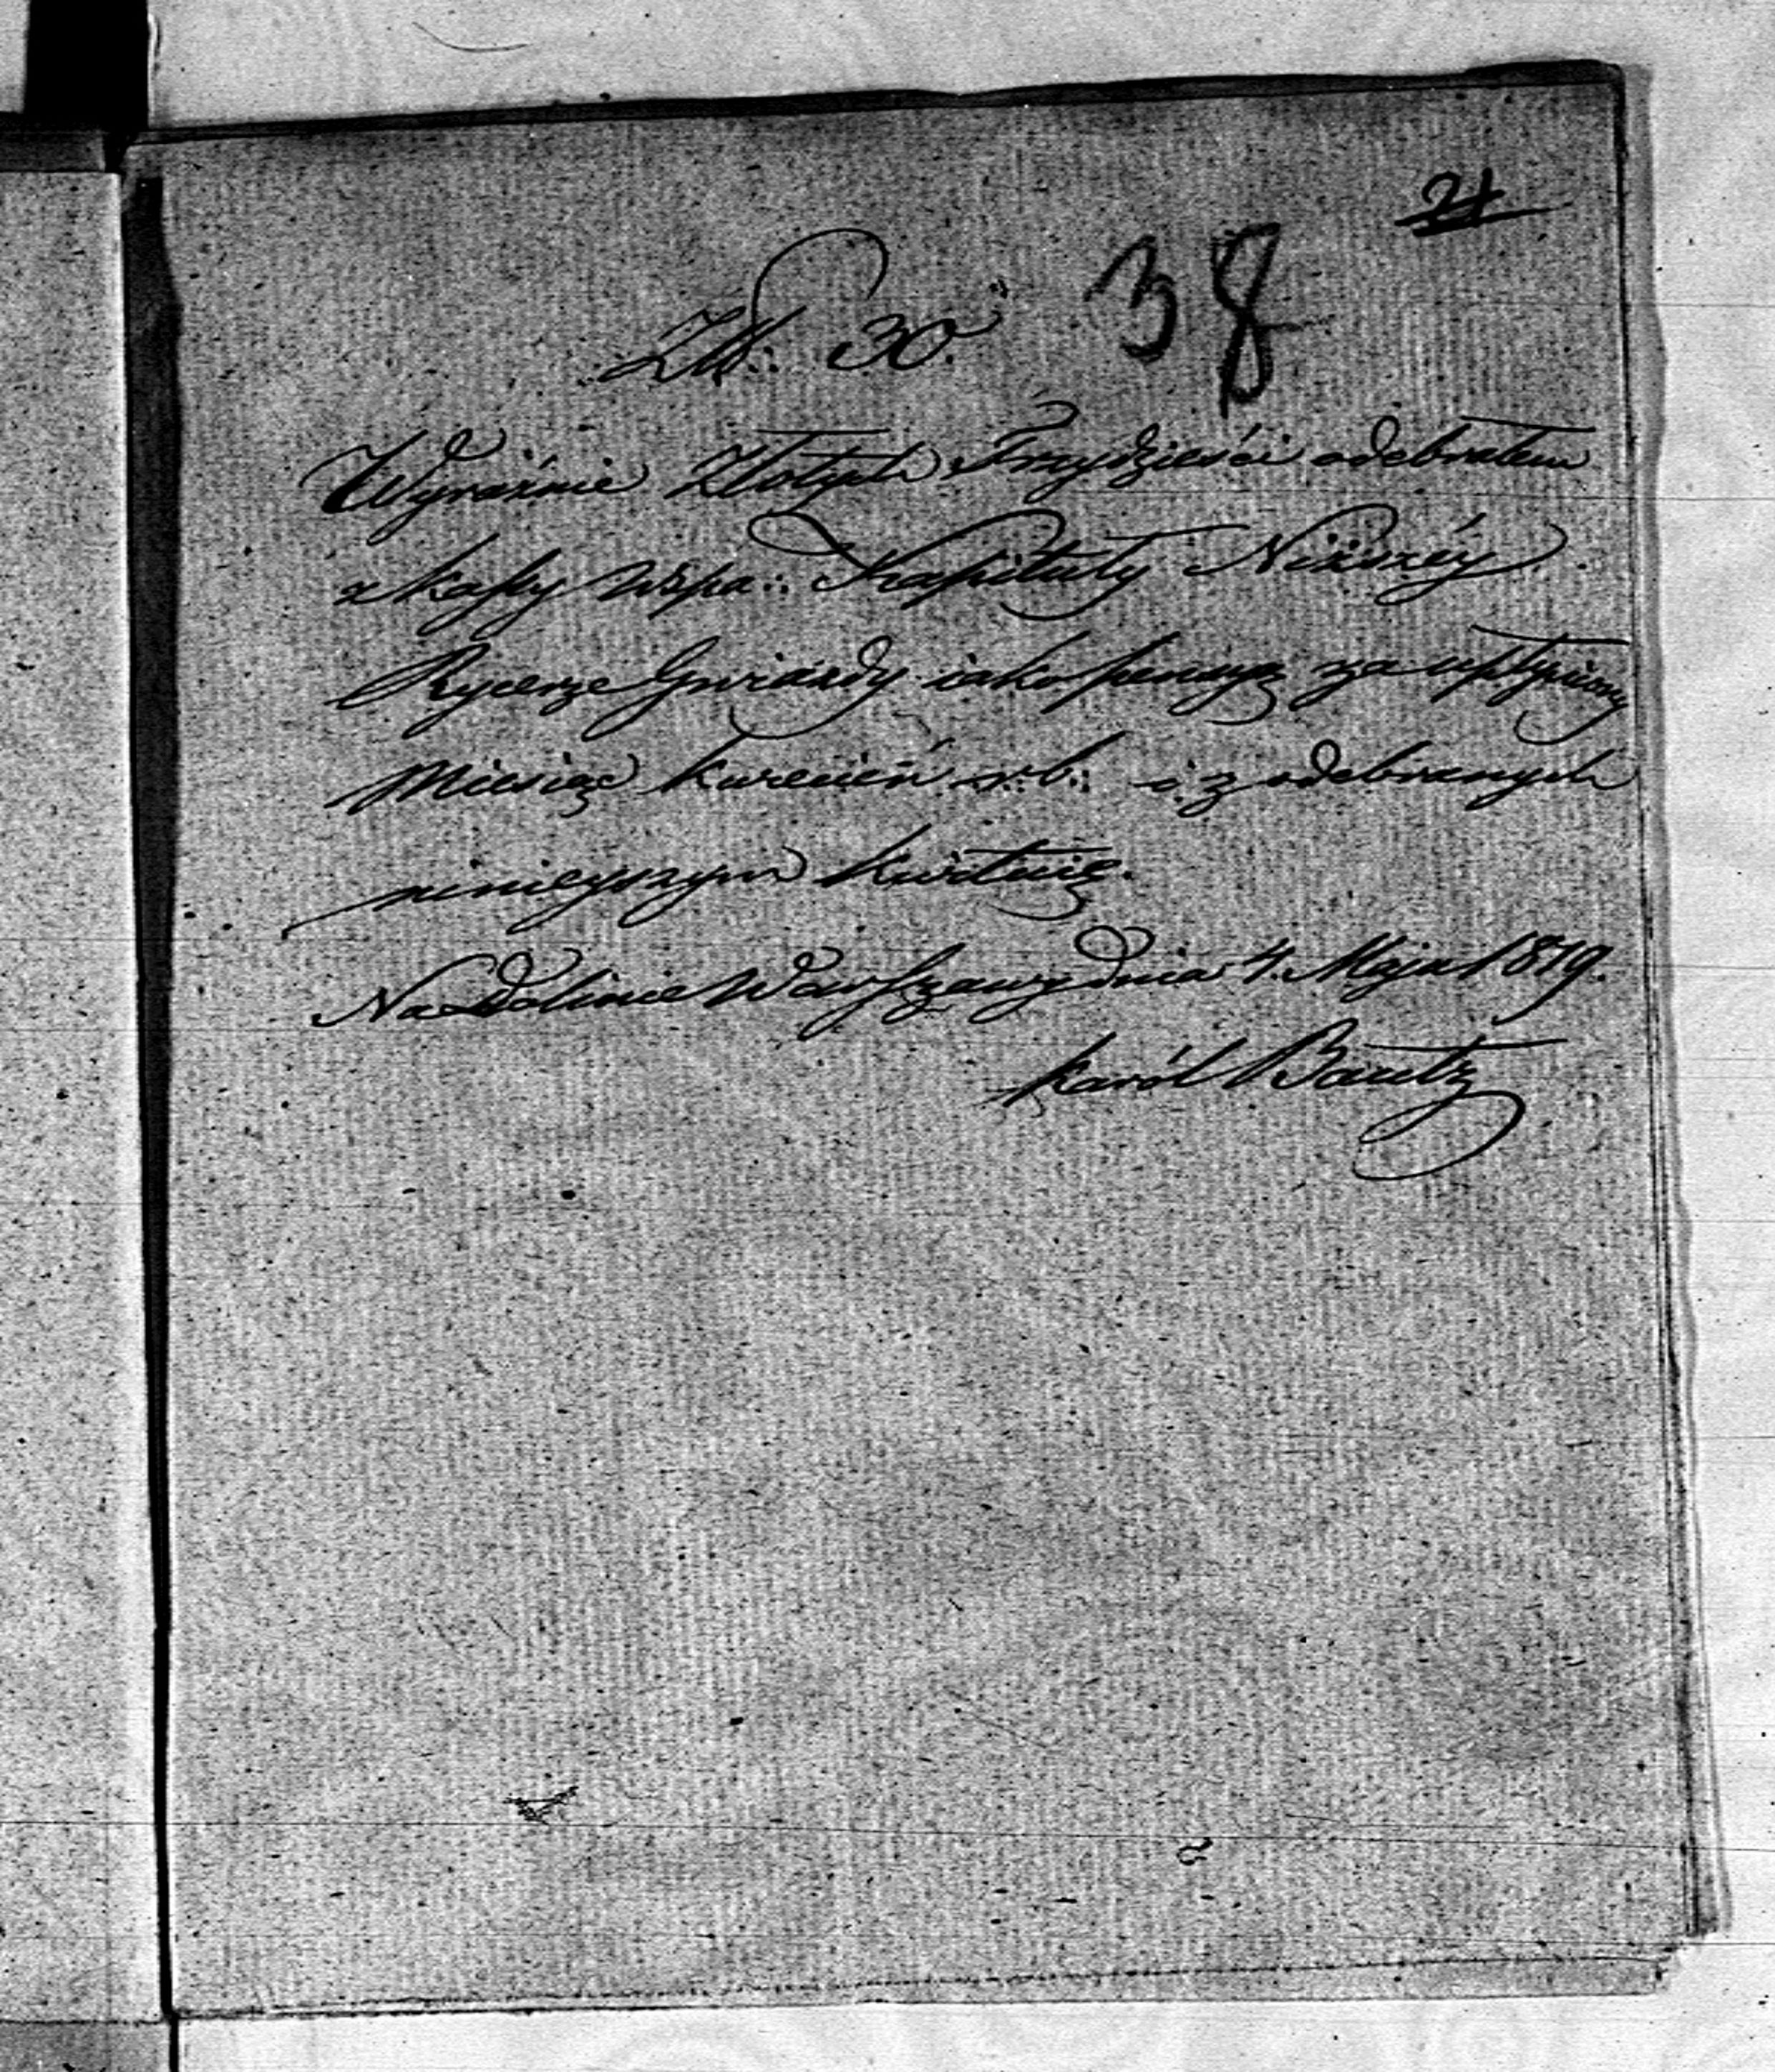 21
38
Złł: 30.
Wyraźnie Złotych Trzydzieści odebrałem
z kassy Wspa: Kapituły Niższéy
Rycerze Gwiazdy iako pensyą za upłyniony
Miesiąc Kwiecień r. b. i z odebranych
ninieyszym kwituię.
Na Dolinie Warszawy dnia 4. Maja 1819.
Karól Bautz